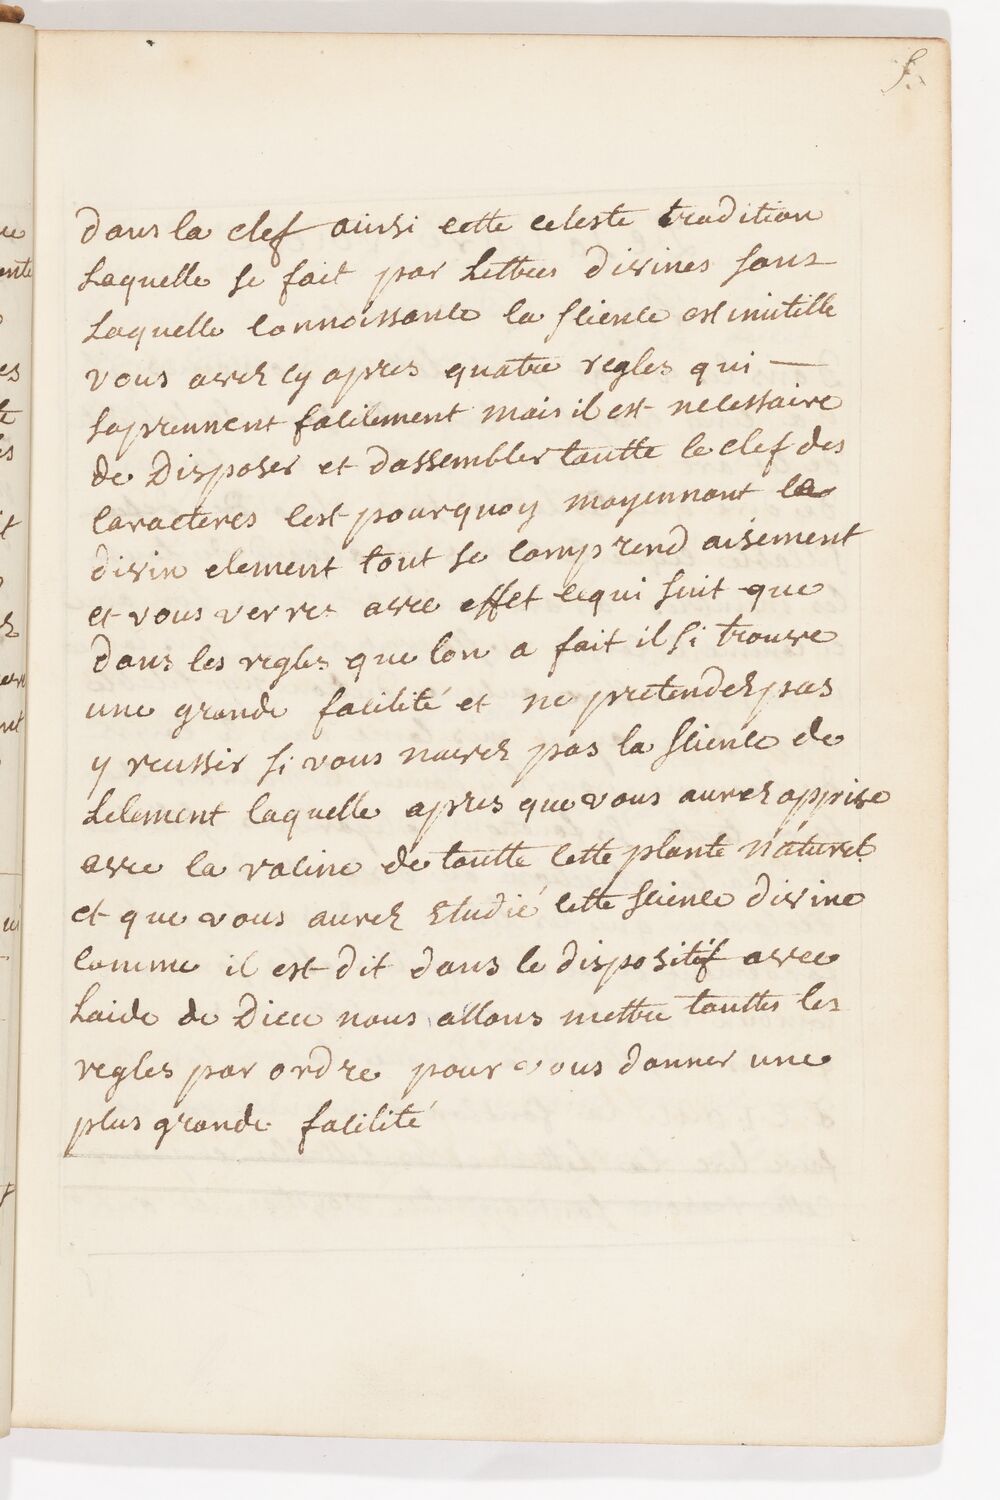 5.
dans la clef ainsi cette celeste tradition
Laquelle se fait par Lettres divines sans
Laquelle connoissance la science est inutille
vous avez cy apres quatre regles qui —
saprennent facilement mais il est necessaire
de Disposer et dassembler toutte le clef des
caracteres cest pourquoy moyennant le
divin element tout se comprend aisement
et vous verres avec effet cequi suit que
dans les regles que lon a fait il si trouve
une grande facilité et ne pretendez pas
y reussir si vous navez pas la science de
Lelement laquelle apres que vous aurez apprise
avec la racine de toutte cette plante naturel
et que vous aurez studié cette science divine
comme il est dit dans le dispositif avec
Laide de Dieu nous allons mettre touttes les
regles par ordre pour vous donner une
plus grande facilité